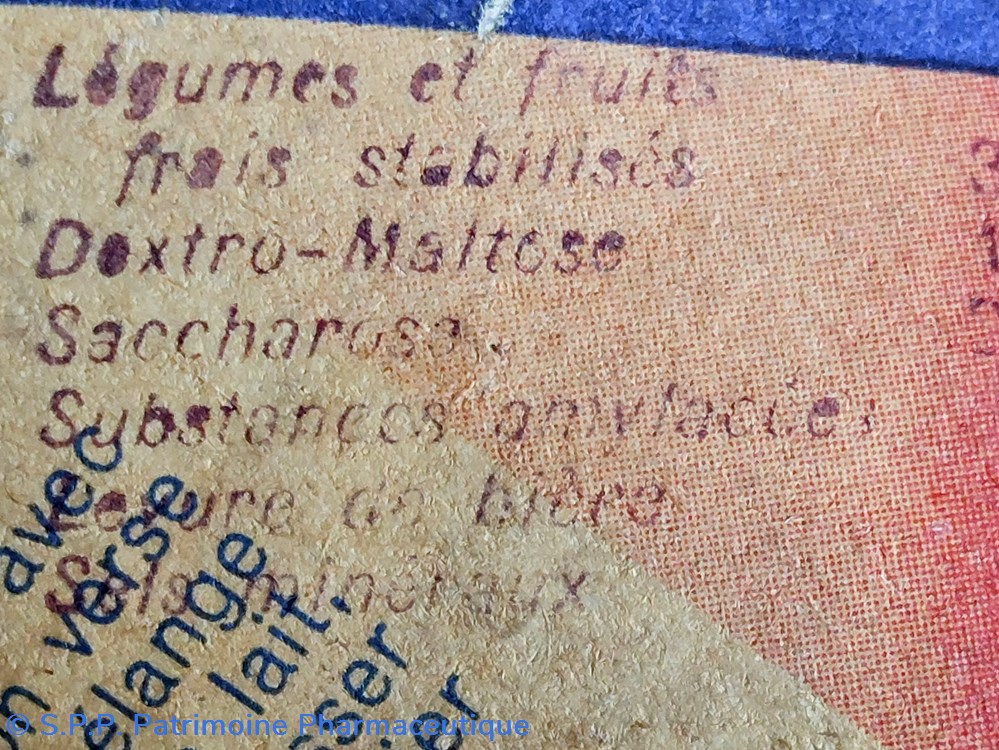 Légumes et fruits
frais stabilisés
Dextro-Maltose
Saccharose
Substances amylacées
Levure de bière
Sels minéraux
avec
verse
lange
lait.
ser
ier
© S.P.P. Patrimoine Pharmaceutique